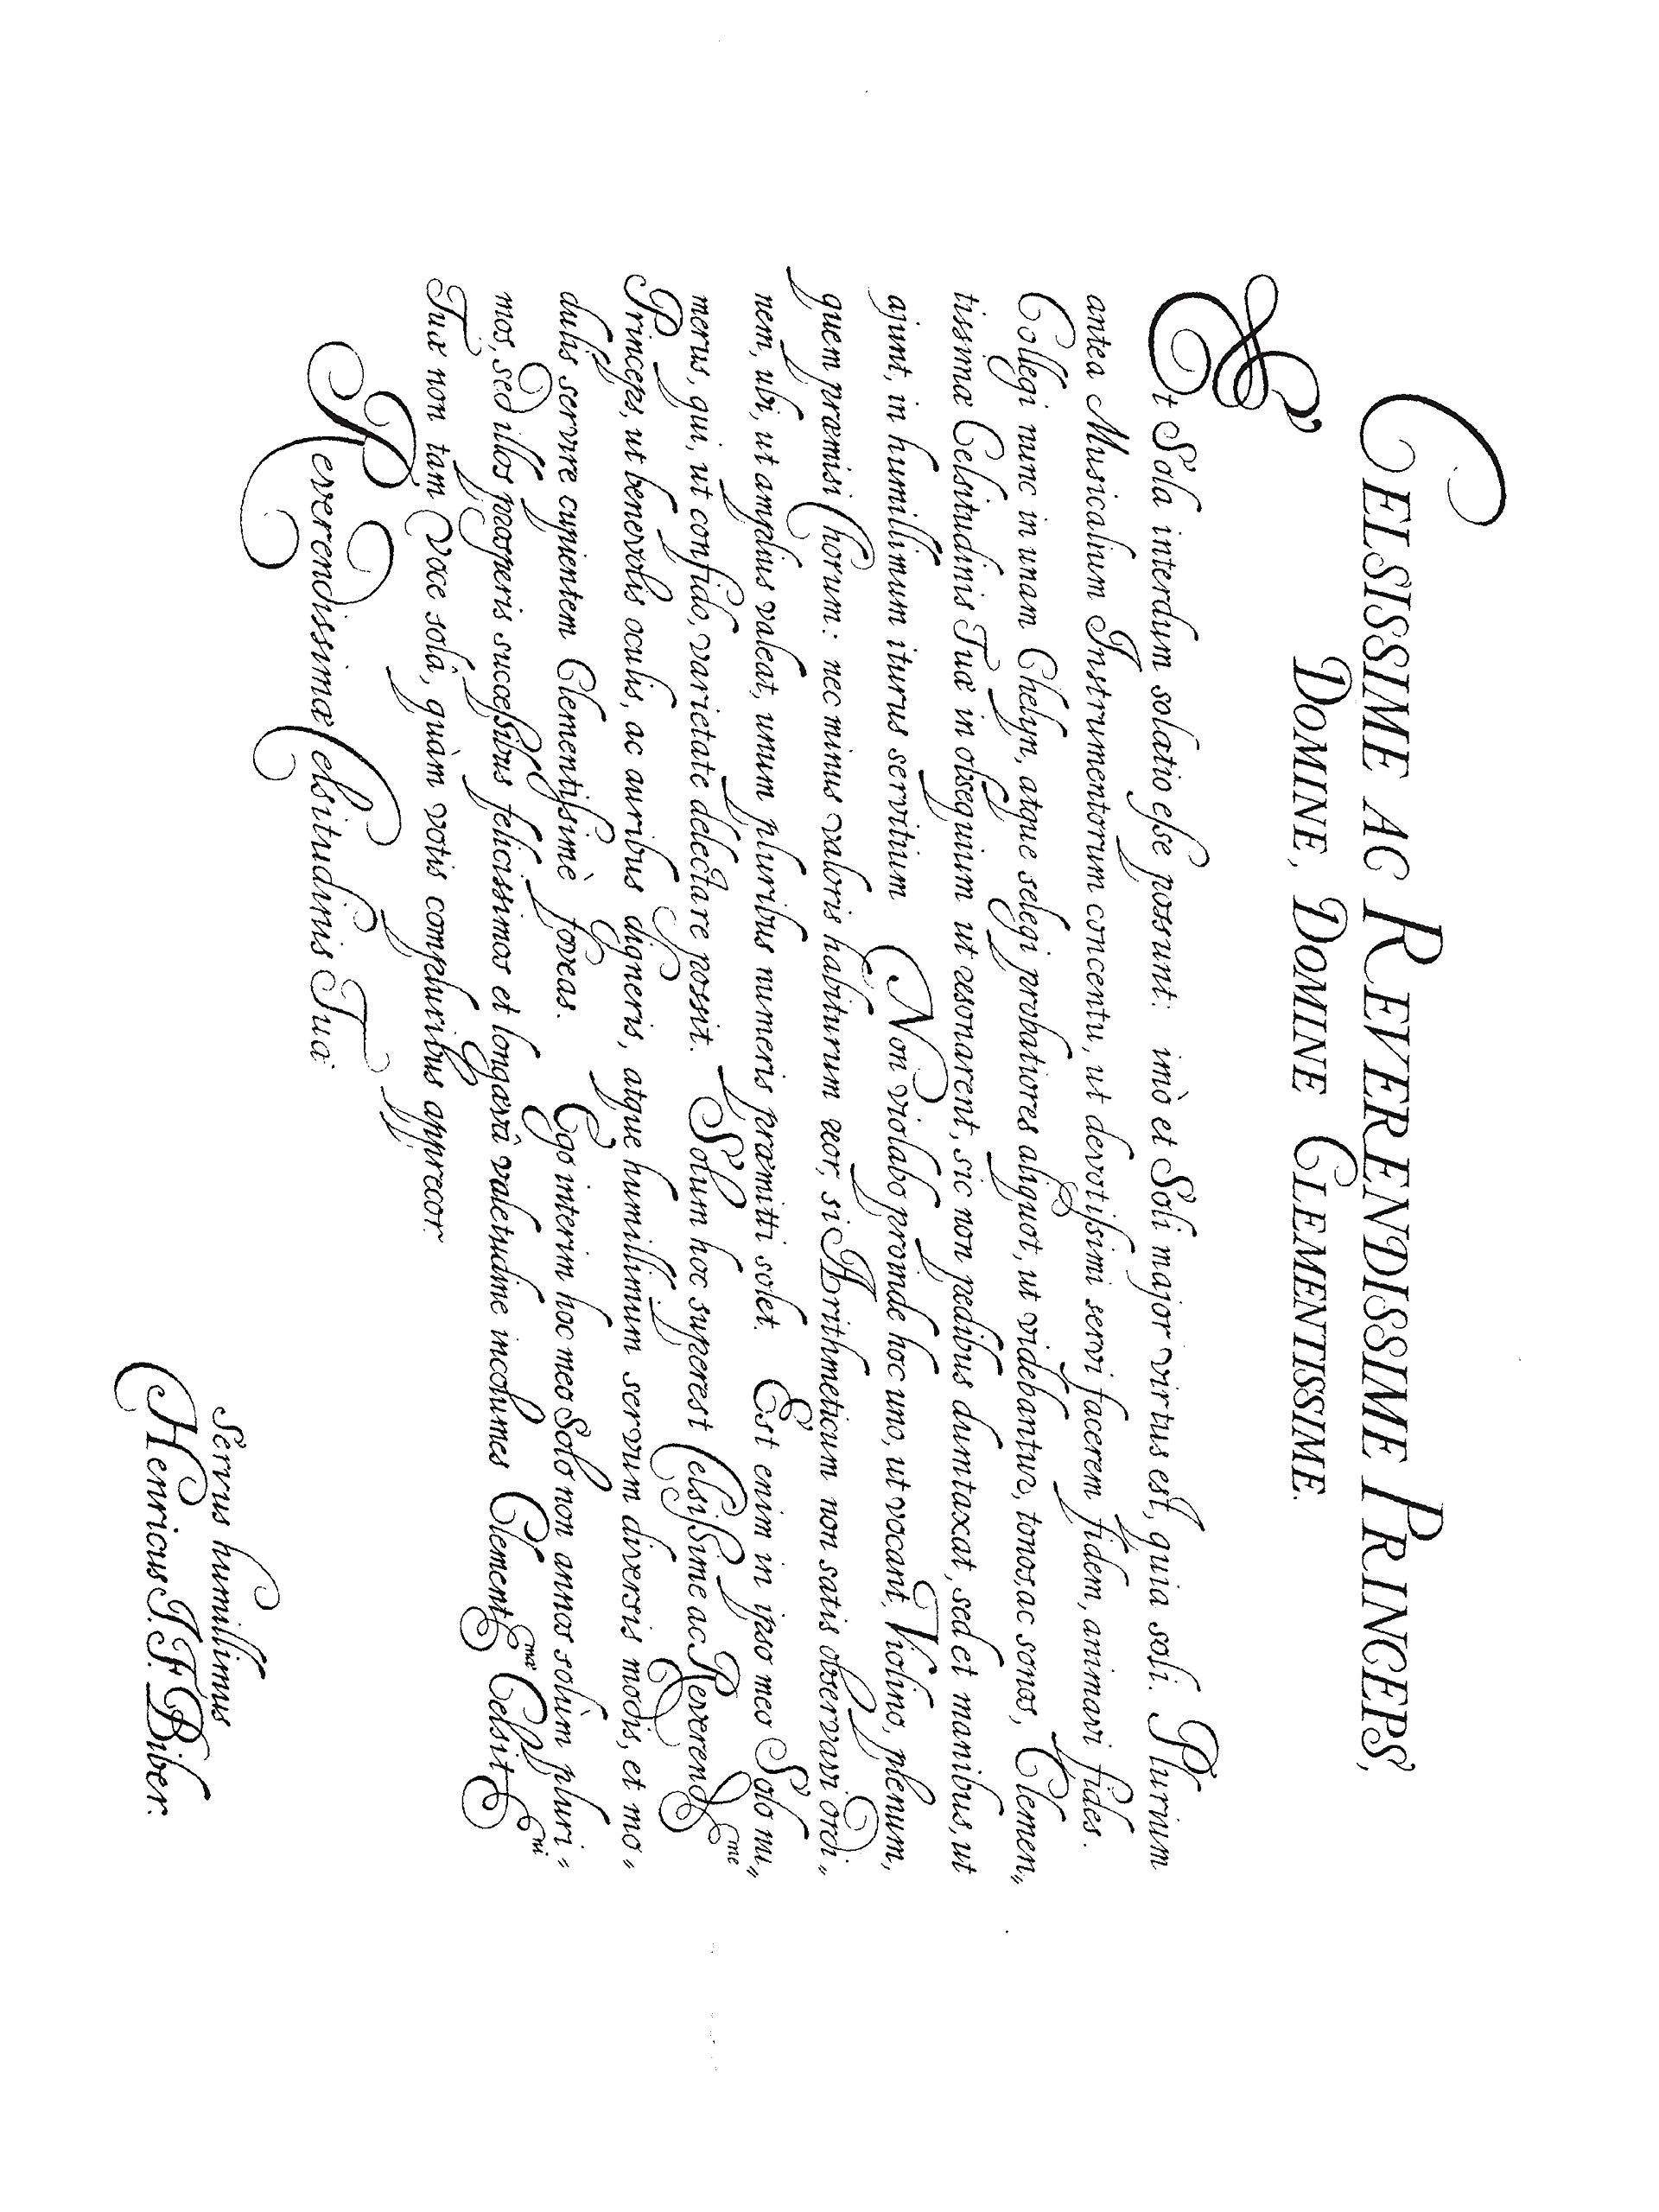 CELSISSIME AC REVERENDISSIME PRINCEPS,
DOMINE, DOMINE CLEMENTISSIME.
Et Sola interdum solatio esse possunt: imò et Soli major virtus est, quia soli. Plurium
antea Musicalium Instrumentorum concentu, ut devotissimi servi facerem fidem, animavi fides.
Collegi nunc in unam Chelyn, atque selegi probatiores aliquot, ut videbantur, tonos, ac sonos, Clemen„
tissimæ Celsitudinis Tuæ in obsequium ut resonarent, sic non pedibus dumtaxat, sed et manibus, ut
ajunt, in humillimum iturus servitium Non violabo proinde hoc uno, ut vocant, Violino, plenum,
quem præmisi Chorum: nec minus valoris habiturum reor, si Arithmeticum non satis observavi ordi„
nem, ubi, ut amplius valeat, unum pluribus numeris præmitti solet. Est enim in ipso meo Solo nu„
merus, qui, ut confido, varietate delectare possit. Solum hoc superest Celsissime ac Reverend me
Princeps, ut benevolis oculis, ac auribus digneris, atque humillimum servum diversis modis, et mo=
dulis servire cupientem Clementissimè foveas. Ego interim hoc meo Solo non annos solùm pluri=
mos, sed illos prosperis successibus felicissimos et longævâ valetudine incolumes Clement mæ Celsit ni
Tuæ non tam Voce solâ, quàm votis compluribus apprecor.
Reverendissimæ Celsitudinis Tuæ
Servus humillimus
Henricus I. F. Biber.